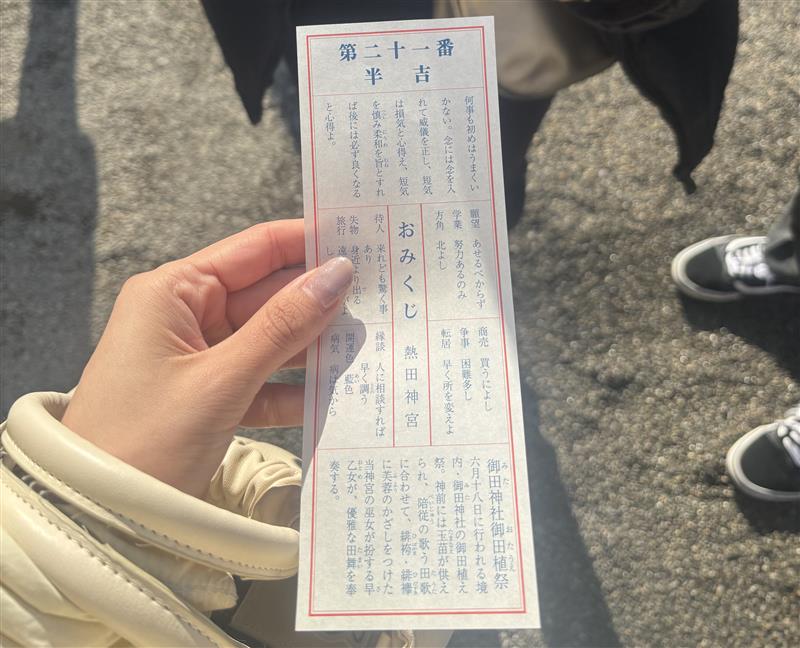 第二十一番
半 吉
何事も初めはうまくい
かない。念には念を入
れて威儀を正し、短気
は損気と心得え、短気
を慎み柔和を旨とすれ
ば後には必ず良くなる
と心得よ。
願望 あせるべからず
学業 努力あるのみ
方角 北よし
商売 買うによし
争事 困難多し
転居 早く所を変えよ
おみくじ 熱田神宮
待人 来れども驚く事
あり
失物 身近より出る
旅行
縁談 人に相談すれば
早く調う
開運色 藍色
病気 病は気から
御田神社御田植祭
六月十八日に行われる境
内・御田神社の御田植え
祭。神前には玉苗が供え
られ、陪従の歌う田歌
に合わせて、緋袴・緋襷
に芙蓉のかざしをつけた
当神宮の巫女が扮する早
乙女が、優雅な田舞を奉
奏する。